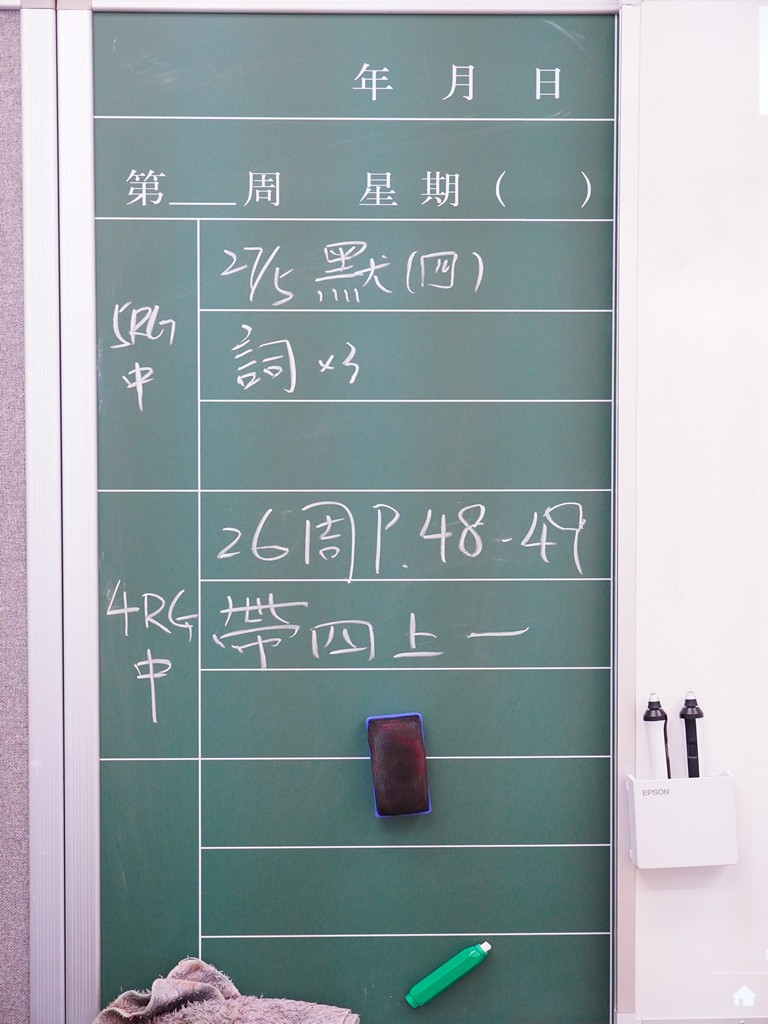 年 月 日
第___周 星期( )
5RG 中
27/5 默(四)
詞 ×3
4RG 中
26周 P.48-49
帶四上一
EPSON